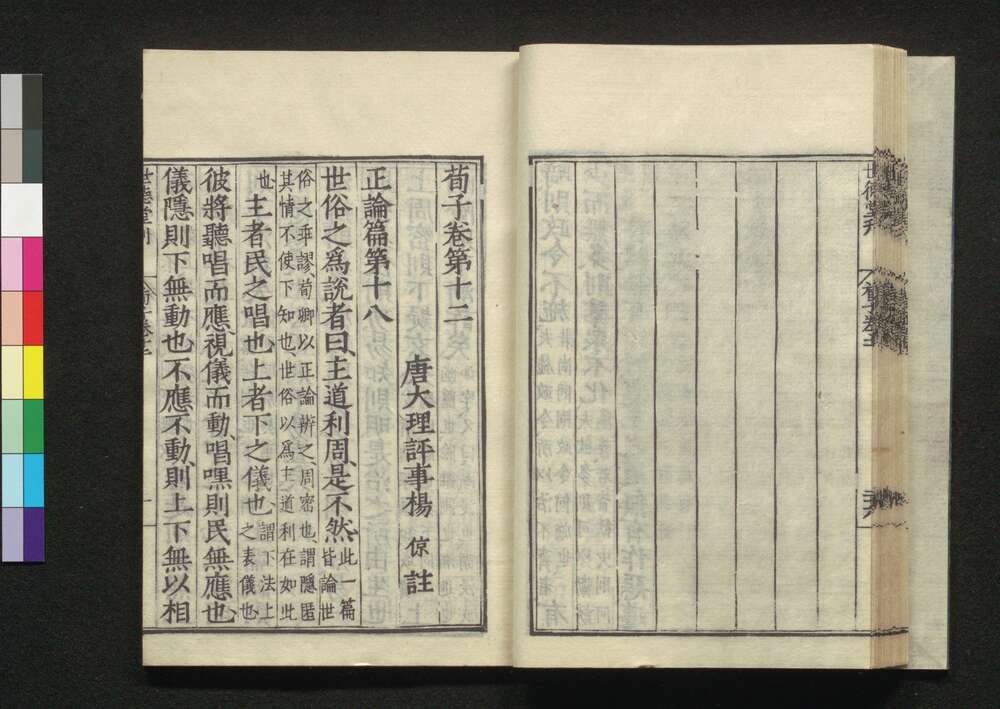 荀子卷第十二
唐大理評事楊 倞 註
正論篇第十八
世俗之爲說者曰、主道利周、是不然、此一篇皆論世
俗之乖謬、荀卿以正論辨之、周密也、謂隱匿其情不使下知也、世俗以爲主道利在如此
也、主者民之唱也、上者下之儀也、謂下法上之表儀也、
彼將聽唱而應、視儀而動、唱嘿則民無應也、
儀隱則下無動也、不應不動、則上下無以相
世德堂刊